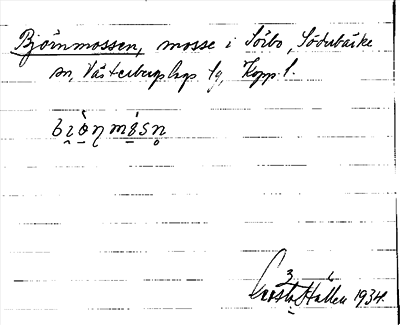 Björnmossen, mosse i Sörbo, Söderbärke
sn, Västerbergslags fg, Kopp. l.
Gösta Hallen 1934.